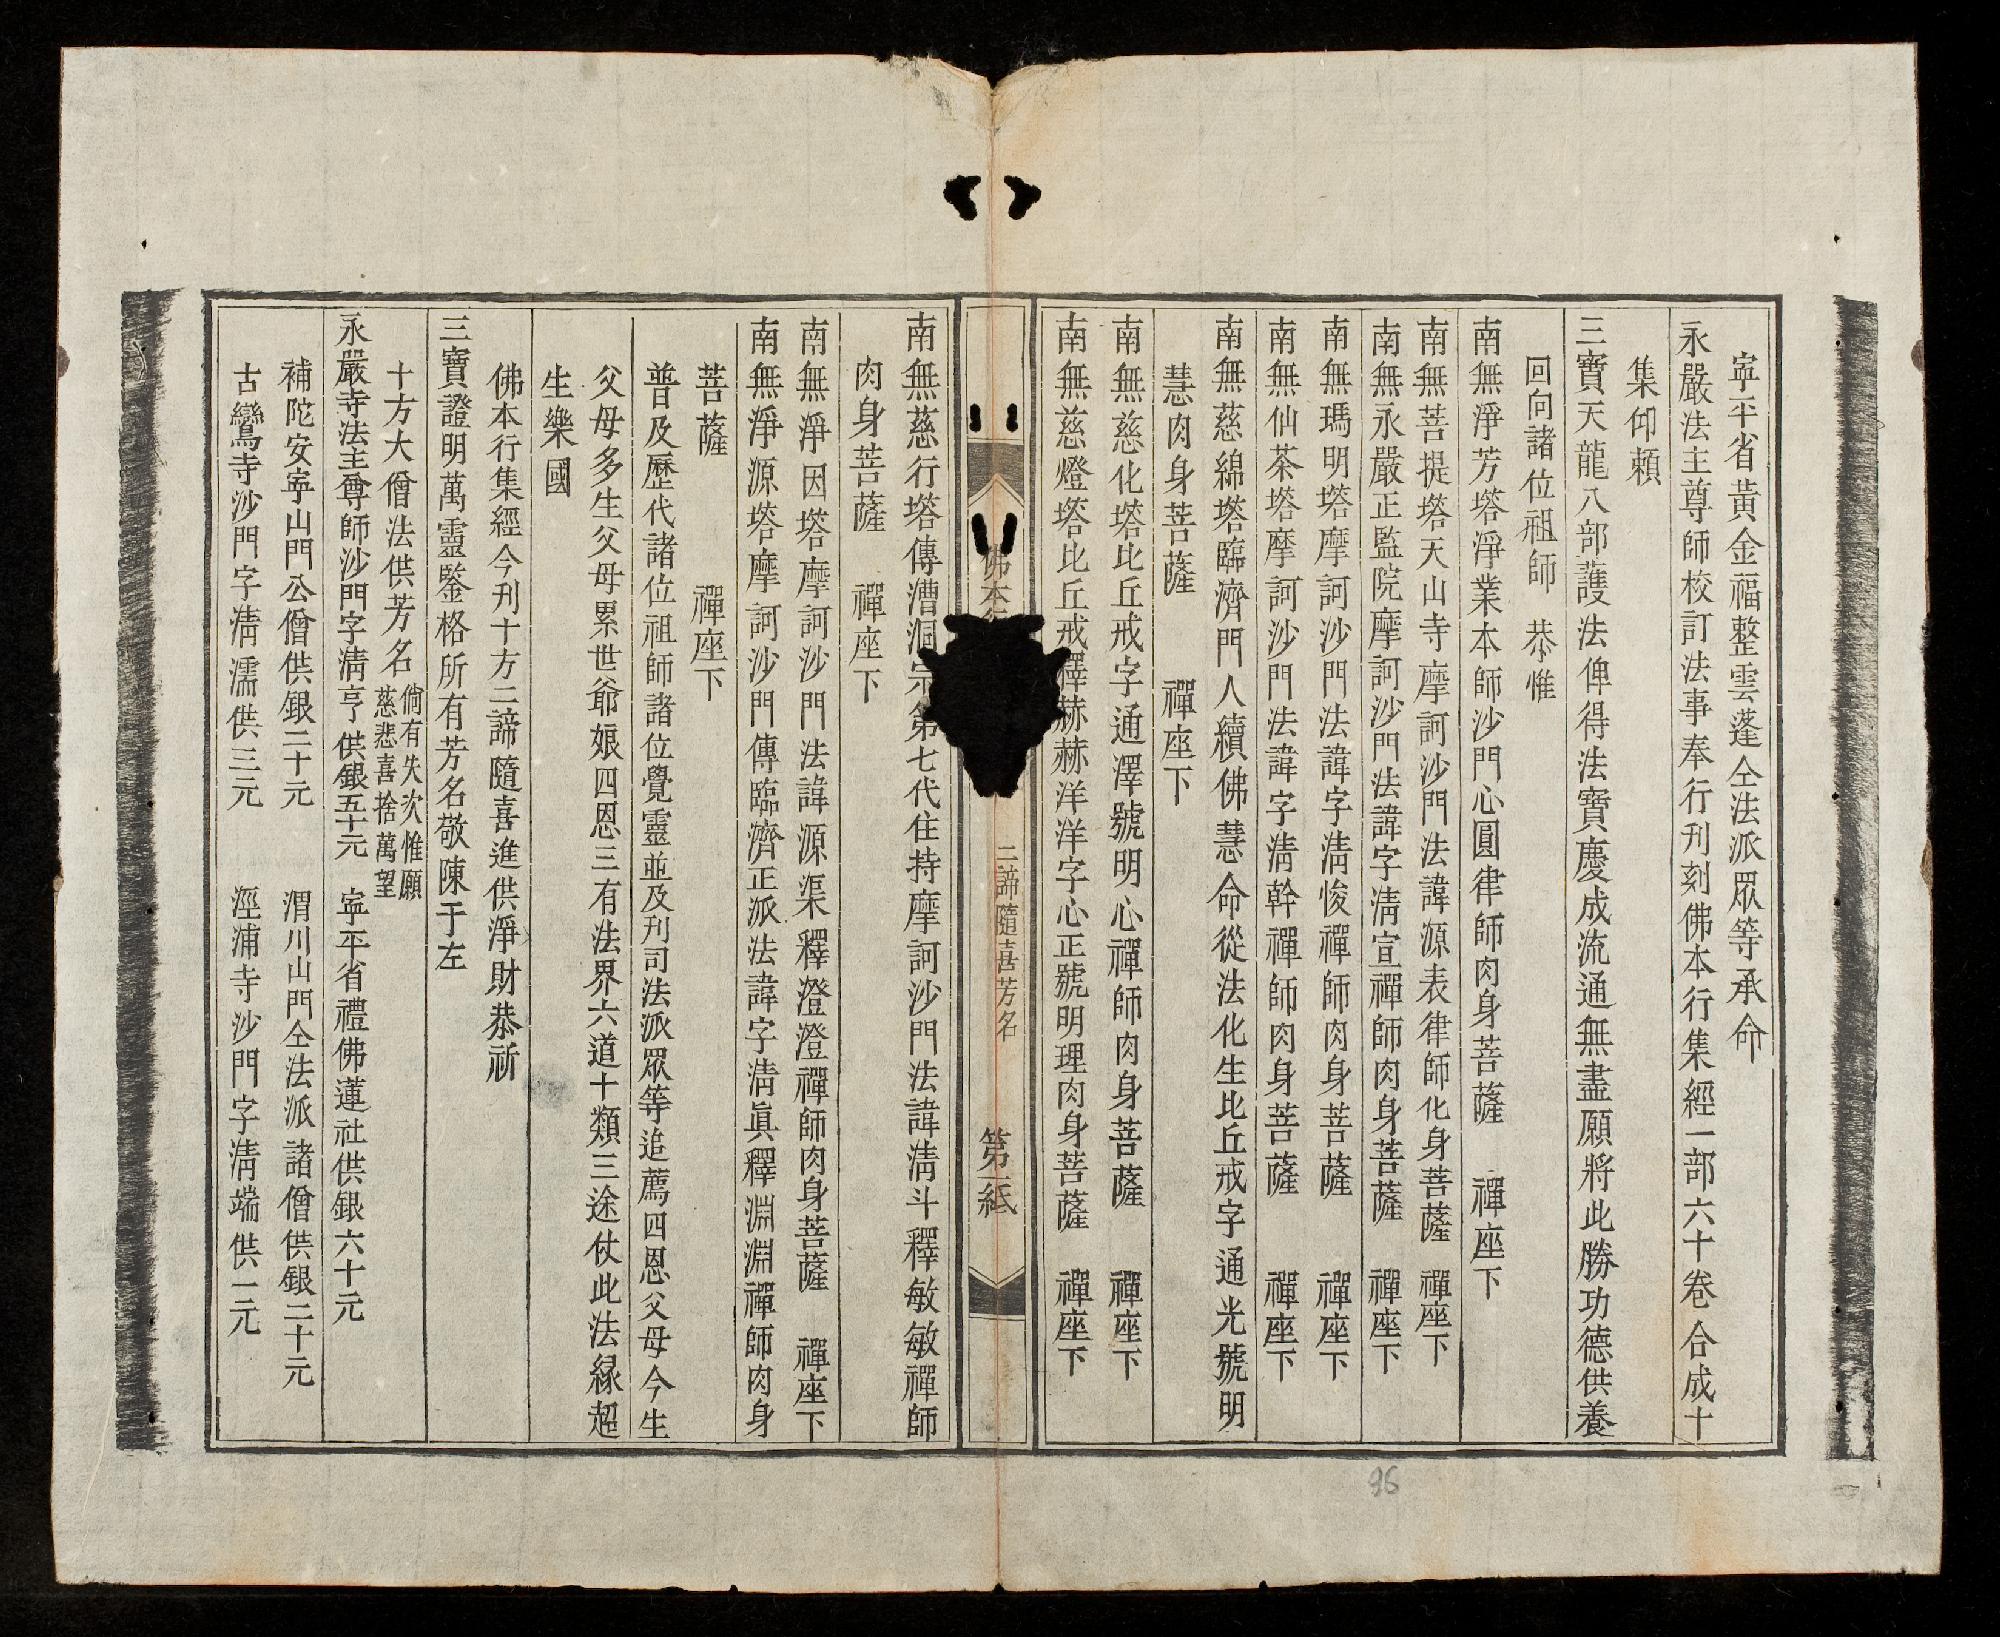 寜平省黃金福整雲蓬仝法派眾等承命
永嚴法主尊師校訂法事奉行刊刻佛本行集經一部六十卷合成十
集仰賴
三寶天龍八部護法俾得法寶慶成流通無盡願將此勝功德供養
回向諸位祖師　恭惟
南無淨芳塔淨業本師沙門心圓律師肉身菩薩　禪座下
南無菩提塔天山寺摩訶沙門法諱源表律師化身菩薩　禪座下
南無永嚴正監院摩訶沙門法諱字清宣禪師肉身菩薩　禪座下
南無瑪明塔摩訶沙門法諱字清悛禪師肉身菩薩　禪座下
南無仙茶塔摩訶沙門法諱字清幹禪師肉身菩薩　禪座下
南無慈綿塔臨濟門人續佛慧命從法化生比丘戒字通光號明
慧肉身菩薩　禪座下
南無慈化塔比丘戒字通澤號明心禪師肉身菩薩　禪座下
南無慈燈塔比丘戒釋赫赫洋洋字心正號明理肉身菩薩　禪座下
佛本　二諦隨喜芳名　第二紙
南無慈行塔傳漕洞宗第七代住持摩訶沙門法諱清斗釋敏敏禪師
肉身菩薩　禪座下
南無淨因塔摩訶沙門法諱源渠釋澄澄禪師肉身菩薩　禪座下
南無淨源塔摩訶沙門傳臨濟正派法諱字清眞釋淵淵禪師肉身
菩薩　禪座下
普及歷代諸位祖師諸位覺靈並及刊司法派眾等追薦四恩父母今生
父母多生父母累世爺娘四恩三有法界六道十類三途仗此法緣超
生樂國
佛本行集經今刊十方二諦隨喜進供淨財恭祈
三寶證明萬靈鑒格所有芳名敬陳于左
十方大僧法供芳名　倘有失次惟願
慈悲喜捨萬望
永嚴寺法主尊師沙門字清亨供銀五十元　寜平省禮佛蓮社供銀六十元
補陀安寜山門公僧供銀二十元　渭川山門仝法派諸僧供銀二十元
古鸞寺沙門字清濡供三元　涇浦寺沙門字清端供一元
96